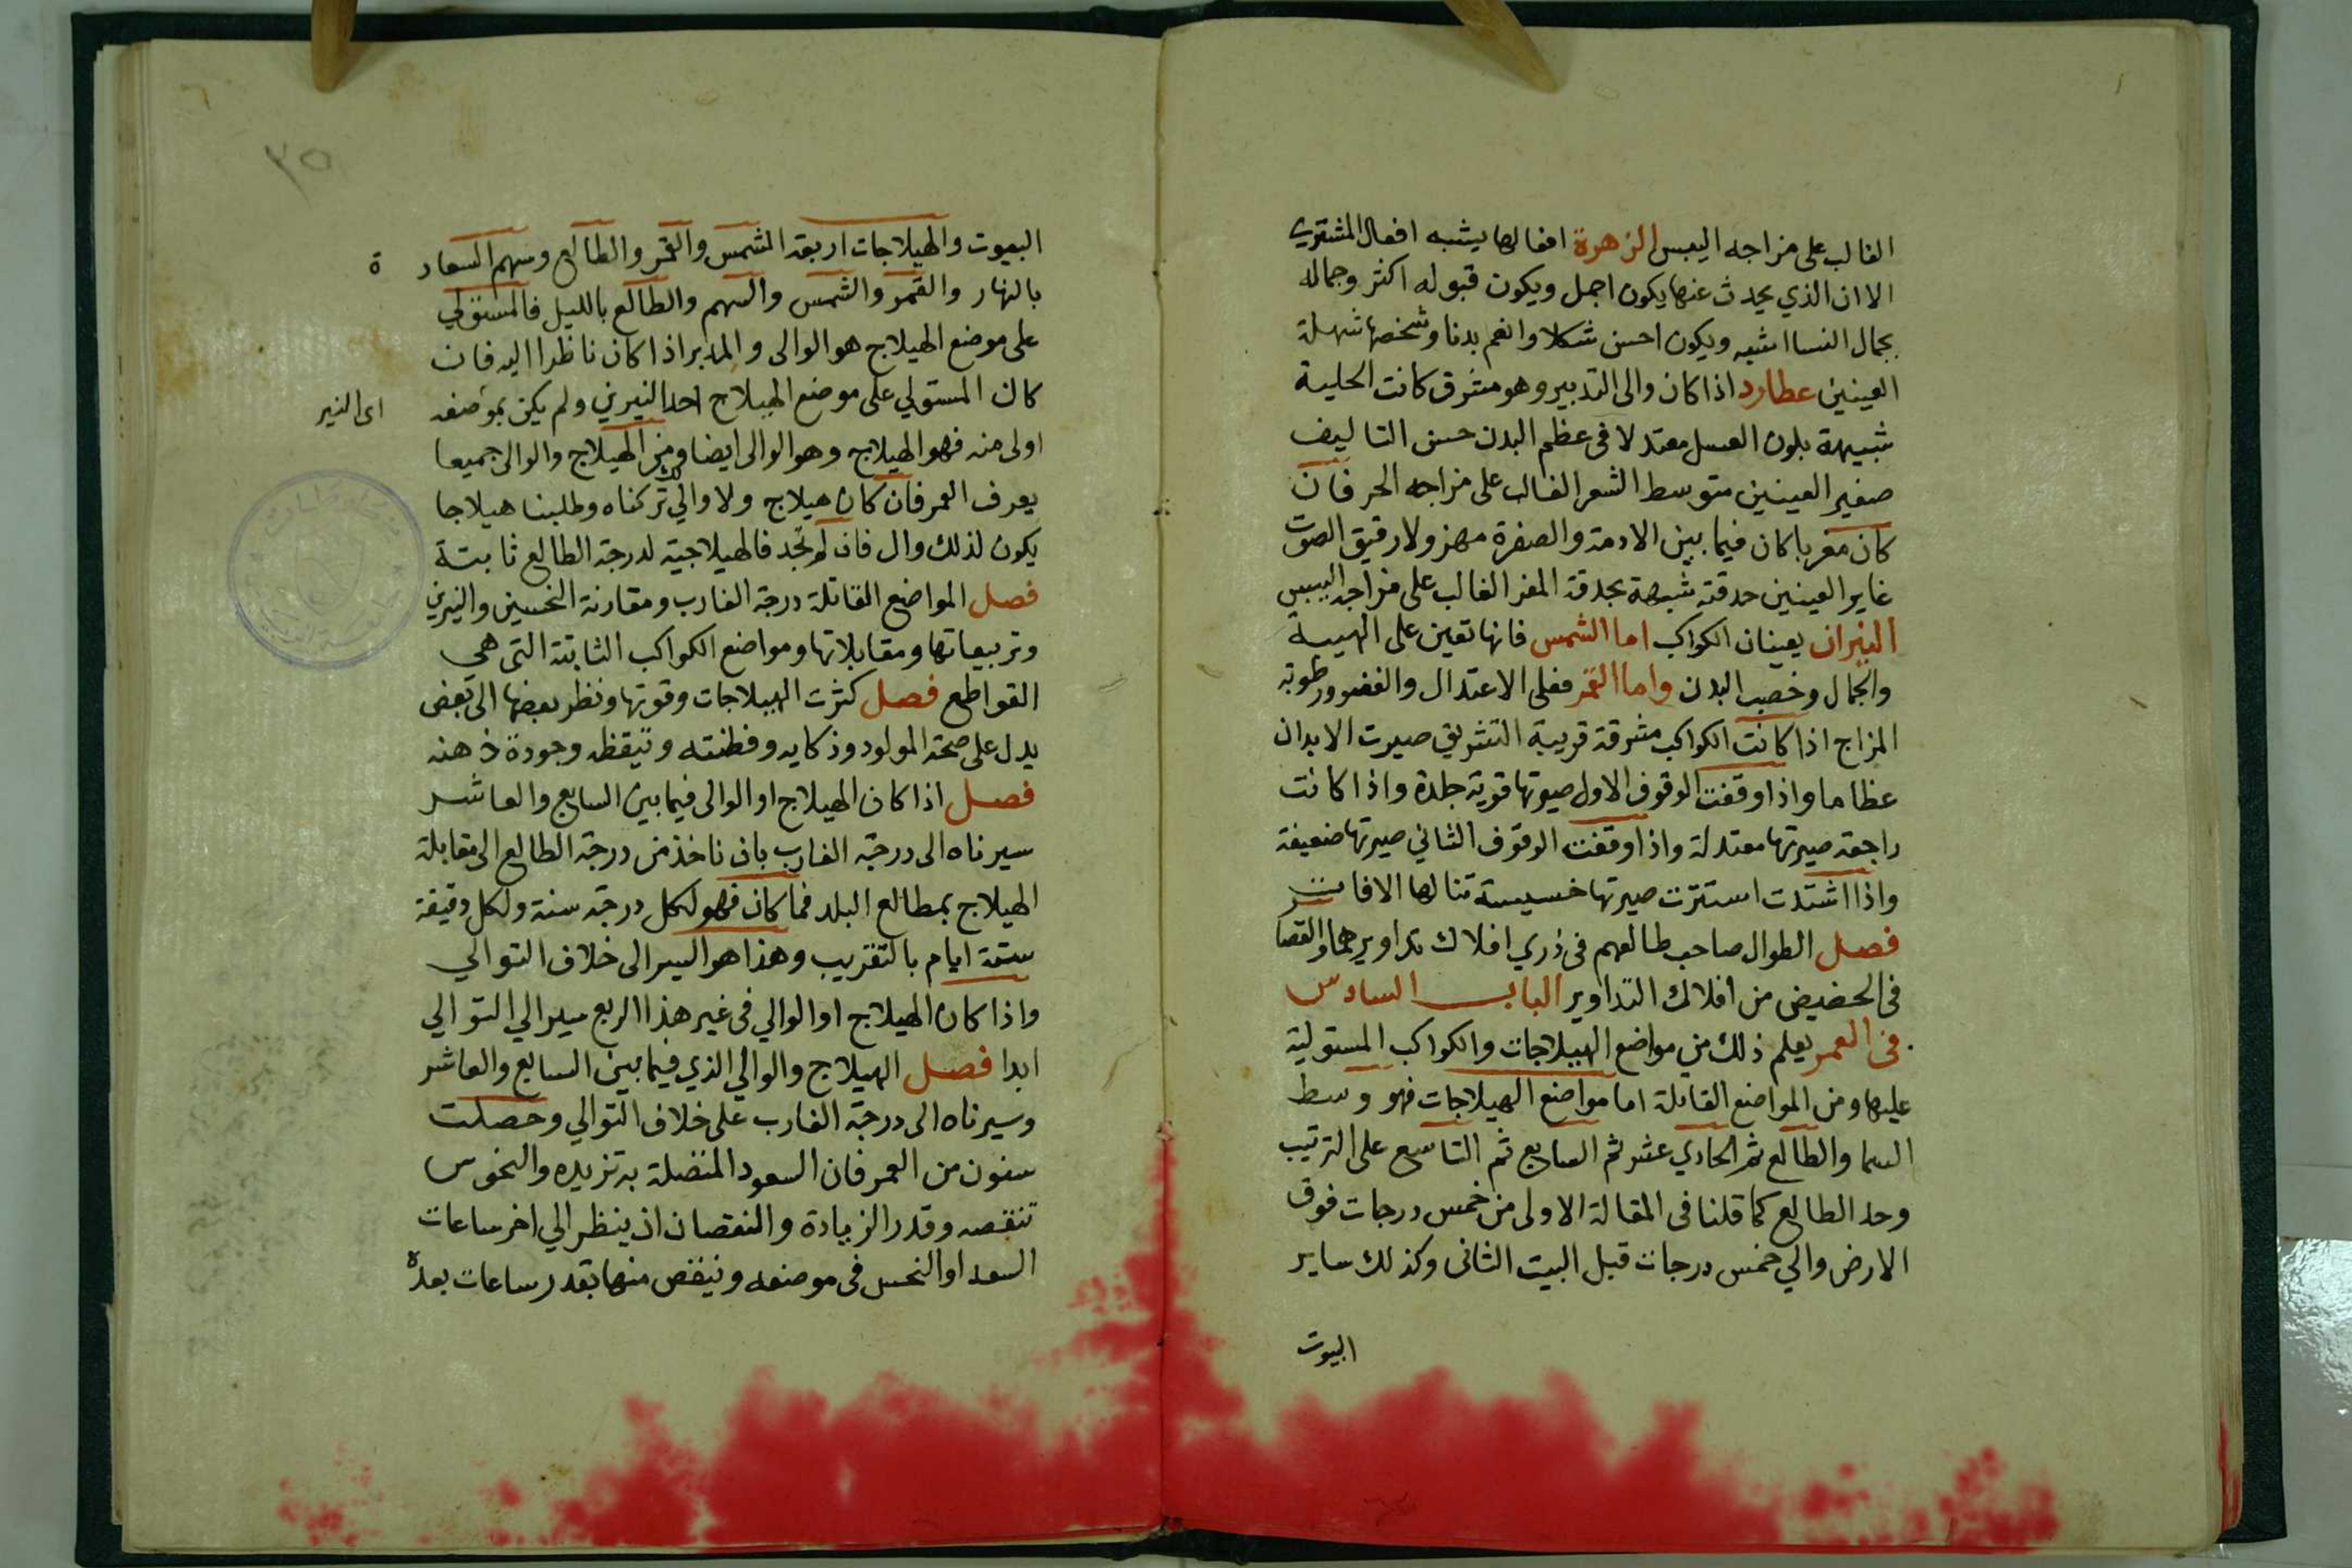 الغالب على مزاجه اليبس الزهرة افعالها يشبه افعال المشتري
الا ان الذي يحدث عنها يكون اجمل ويكون قبوله اكثر وجماله
بجمال النسا اشبه ويكون احسن شكلا وانعم بدنا وشخصها شهلة
العينين عطارد اذا كان والى التدبير وهو مشرق كانت الحلية
شبيهة بلون العسل معتدلا فى عظم البدن حسن التاليف
صغير العينين متوسط الشعر الغالب على مزاجه الحر فان
كان مغربا كان فيما بين الادمة والصفرة مهزولا رقيق الصوت
غاير العينين حدقته شبيهة بحدقة المعز الغالب على مزاجه اليبس
النيران يعينان الكواكب اما الشمس فانها تعين على الهيبة
والجمال وخصب البدن واما القمر فعلى الاعتدال والغضو ورطوبة
المزاج اذا كانت الكواكب مشرقة قريبة التشريق صيرت الابدان
عظاما واذا وقفت الوقوف الاول صيرتها قوية جلدة واذا كانت
راجعة صيرتها معتدلة واذا وقفت الوقوف الثاني صيرتها ضعيفة
واذا اشتدت استترت صيرتها خسيسة تنالها الافات
فصل الطوال صاحب طالعهم فى ذري افلاك تداويرهما والقصا
فى الحضيض من افلاك التداوير الباب السادس
فى العمر يعلم ذلك من مواضع الهيلاجات والكواكب المستولية
عليها ومن المواضع القاتلة اما مواضع الهيلاجات فهو وسط
السما والطالع ثم الحادي عشر ثم السابع ثم التاسع على الترتيب
وحد الطالع كما قلنا فى المقالة الاولى من خمس درجات فوق
الارض والي خمس درجات قبل البيت الثانى وكذلك ساير
البيوت
٣٥
البيوت والهيلاجات اربعة الشمس والقمر والطالع وسهم السعاد ة
بالنهار والقمر والشمس والسهم والطالع بالليل فالمستولي
على موضع الهيلاج هو الوالى والمدبر اذا كان ناظرا اليه فان
كان المستولي على موضع الهيلاج احد النيرين ولم يكن بموضعه
اى النير
اولى منه فهو الهيلاج وهو الوالى ايضا ومن الهيلاج والوالى جميعا
يعرف العمر فان كان هيلاج ولا والي تركناه وطلبنا هيلاجا
يكون لذلك وال فان لم تجد فالهيلاجية لدرجة الطالع ثابتة
فصل المواضع القاتلة درجة الغارب ومقارنة النحسين والنيرين
وتربيعاتها ومقابلاتها ومواضع الكواكب الثابتة التى هي
القواطع فصل كثرت الهيلاجات وقوتها ونظر بعضها الى بعض
يدل على صحة المولود وذكايه وفطنته وتيقظه وجودة ذهنه
فصل اذا كان الهيلاج او الوالى فيما بين السابع والعاشر
سيرناه الى درجة الغارب بان ناخذ من درجة الطالع الى مقابلة
الهيلاج بمطالع البلد فما كان فهو لكل درجة سنة ولكل دقيقة
ستة ايام بالتقريب وهذا هو السير الى خلاف التوالي
واذا كان الهيلاج او الوالي فى غير هذا الربع سير الي التوالي
ابدا فصل الهيلاج والوالي الذي فيما بين السابع والعاشر
وسيرناه الى درجة الغارب على خلاف التوالي وحصلت
سنون من العمر فان السعود المتصلة به تزيده والنحوس
تنقصه وقدر الزيادة والنقصان ان ينظر الي اخر ساعات
السعد او النحس فى موضعه وننقص منها بقدر ساعات بعده